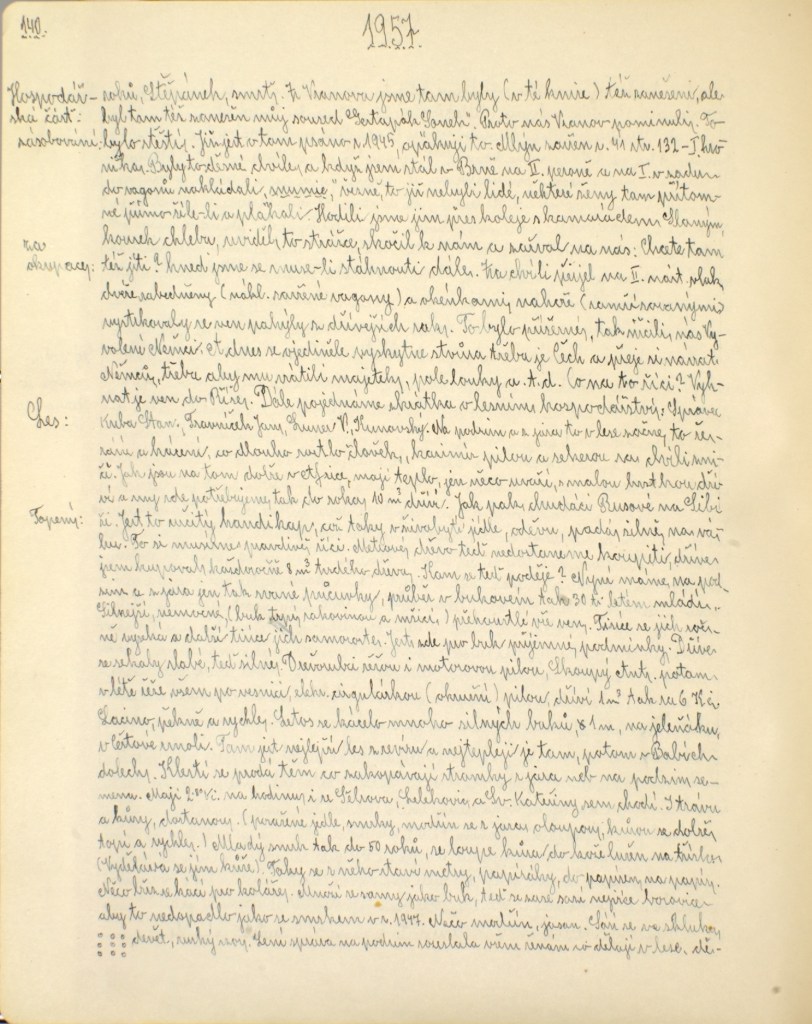 140.
1957
Hospodář-
ská část:
zásobování:
za
okupace:
Les:
Topení:
roků, Štěpánek, smrt. Z Vranova jsme tam byly (v té knize) též zanešeni, ale
byl tam též zanešen můj soused "Gestapák Honek". Proto nás Vranov pominuly. To
bylo štěstí. Již jest o tom psáno r. 1945, opakuji to. Mlýn zavřen r. 41 str. 132 - I. kro-
nika. Byly to děsné chvíle, a když jsem stál v Brně na II. peroně a na I. vzadu
do vagonů nakládali, "mumie", vězně, to již nebyli lidé, některé ženy tam přítom-
né přímo šíle-li a plákali. Hodili jsme jim přes koleje s kamarádem, Slaným
kousek chleba, uviděl, to strážce, skočil k nám a zařval na nás: Chcete tam
též jíti? hned jsme se muse-li stáhnouti dále. Za chvíli přijel na II. nást. vlak,
dveře zabedněny (nákl. zavřené vagony) a okénkami, nahoře (zamřížovanými)
vystrkovaly se ven pahýly z dřívějších ruk. To bylo příšerné, tak ničili, nás Vy-
volení Němci. A dnes se ojediněle vyskytne stvůra třeba je Čech a přeje si navrat
Němců, třeba aby mu vrátili majetky, pole louky a.t.d. Co na to říci? Vyh-
nat je ven do Říše. Dále pojednáme zkrátka o lesním hospodářství: Správa
Kuba Stan., Trávníček Jan, V., Kunovský. Na podzim a z jara to v lese začne, to ře-
zání a kácení, co dlouho rostlo člověk, kazimír pilou a sekerou za chvíli zni-
čí. Jak jsou na tom dobře v Africe, mají teplo, jen něco uvaří, s malou hrstkou dří-
ví a my zde potřebujeme, tak do roka, 10 m³ dříví. Jak pak chudáci Rusové na Sibi-
ři. Jest to určitý handikap, což taky v živobytí jídle, oděvu, padá, silně, na vá-
hu. To si musíme pravdivě říci. Metrové dřevo teď nedostaneme koupiti, dříve
jsem kupoval, každoročně 8 m³ tvrdého dřeva. Kam se teď poděje? Nyní máme, na pod-
zim a z jara jen tak zvané průřezky, průběr v bukovém tak 30 ti letém mládí.
Silnější, nemocné, (buk trpí, rakovinou a mšicí,) překroutlé vše ven. Tímto se jich roč-
ně vyseká a další tímto jich samoroste. Jest zde pro buk příjemné, podmínky. Dříve
se sekaly slabé, teď silné. Dřevorubci řežou i motorovou pilou, Skoupý Ant. potom
v létě řeže všem po vesnici, elek. cirgulárkou (okružní) pilou, dříví 1 m³ tak za 6 Kčs.
Lacino, pěkně a rychle. Letos se kácelo mnoho silných buků, 1 m, na jeleňáku,
v Čertově úvoli. Tam jest nejlepší les z revíru a nejtepleji je tam, potom v Babích
dolech. Klestí se prodá těm co zakopávají stromky z jara neb na podzim se-
mena. Mají 2.- Kč. na hodinu, i ze Šebrova, Lelekovic, a Sv. Kateřiny sem chodí. I trávu
a kůry, dostanou. (poražené jedle, smrky, modřín se z jara, oloupou, kůrou se dobře
topí a rychle.) Mladý smrk tak do 80 roků, se loupe kůra, do koželužen na tříslo.
(Vydělává se jím kůže). Taky se z něho staví metry, papíráky, do papíren, na papír.
Něco bříz se kácí pro koláře. Množí se samy jako buk, teď se zase sází nejvíce borovice
aby to nedopadlo jako se smrkem v r. 1947. Něco modřín, jasan. Sází se ve shluku,
devět, ruský vzor. Lesní správa na podzim rozeslala všem ženám co dělají v lese, dě-